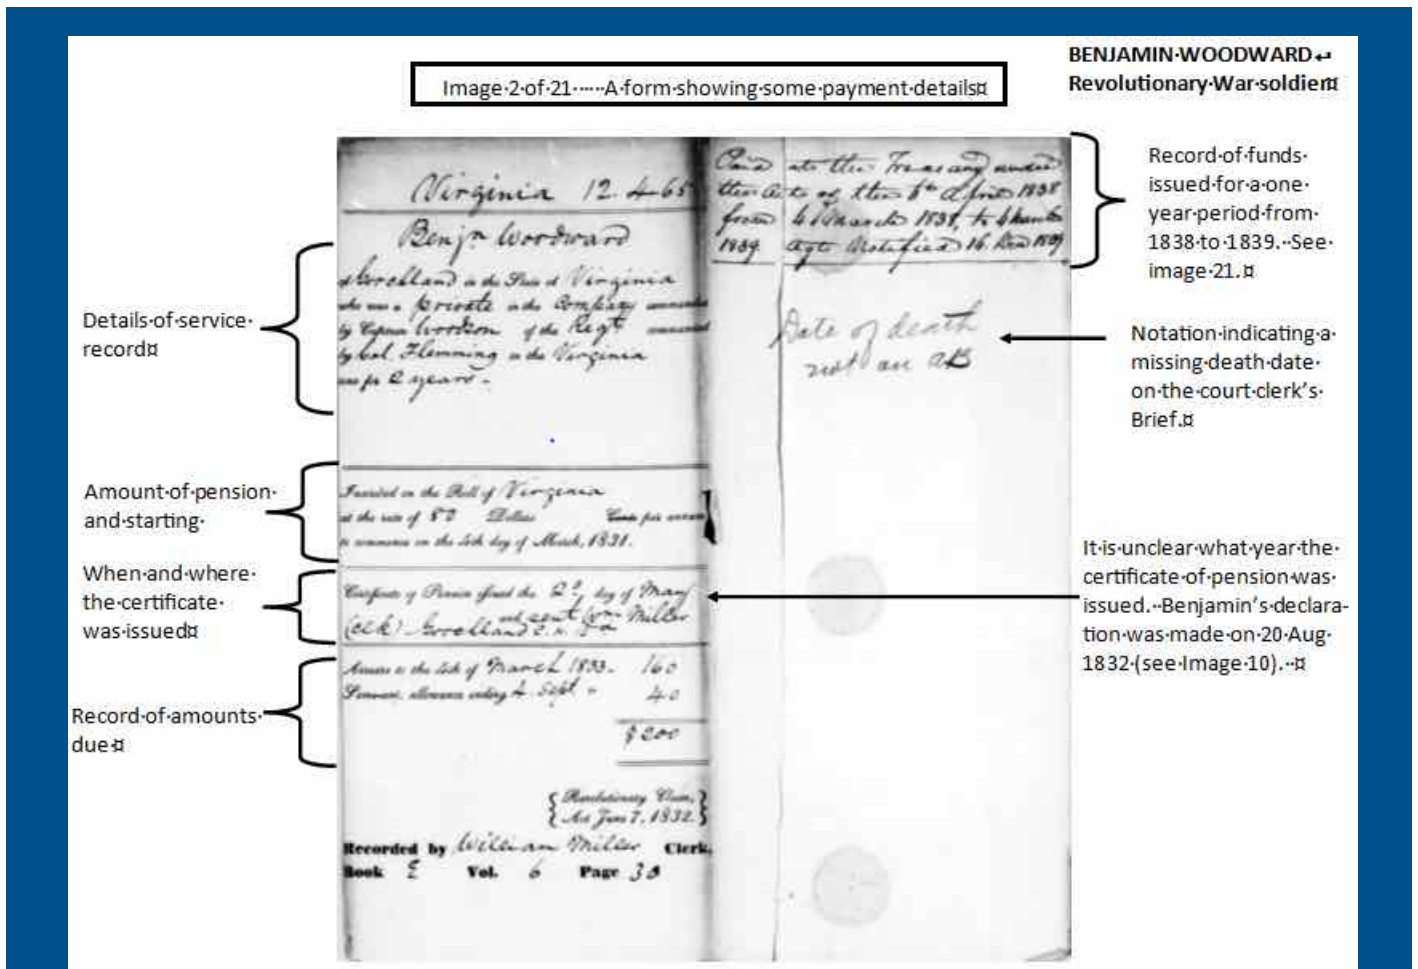 BENJAMIN·WOODWARD↵
Revolutionary·War·soldier¤
Image·2·of·21·····A·form·showing·some·payment·details¤
Details·of·service·
record¤
Amount·of·pension·
and·starting·
When·and·where·
the·certificate·
was·issued¤
Record·of·amounts·
due·¤
Virginia 12.465
Benjn Woodward
of Goochland in the State of Virginia
who was a private in the Company commanded
by Captain Woodson of the Regt commanded
by Col. Flemming in the Virginia
line for 2 years.
Inscribed on the Roll of Virginia
at the rate of 80 Dollars Cents per annum
to commence on the 4th day of March, 1831.
Certificate of Pension issued the 2d day of May
and sent Wm Miller
(clk) Goochland C. H. Va
Arrears to the 4th of March 1833. 160
Semi-anl. allowance ending 4 Sept " 40
$200
{Revolutionary Claim,}
{Act June 7, 1832.}
Recorded by William Miller Clerk,
Book E Vol. 6 Page 30
Paid at the Treasury under
the Act of the 6th April 1838
from 4 March 1838, to 4 March
1839. Agt Notified 16 Dec 1839
Date of death
not on AB
Record·of·funds·
issued·for·a·one·
year·period·from·
1838·to·1839.··See·
image·21.¤
Notation·indicating·a·
missing·death·date·
on·the·court·clerk's·
Brief.¤
It·is·unclear·what·year·the·
certificate·of·pension·was·
issued.··Benjamin's·declara-
tion·was·made·on·20·Aug·
1832·(see·Image·10).··¤